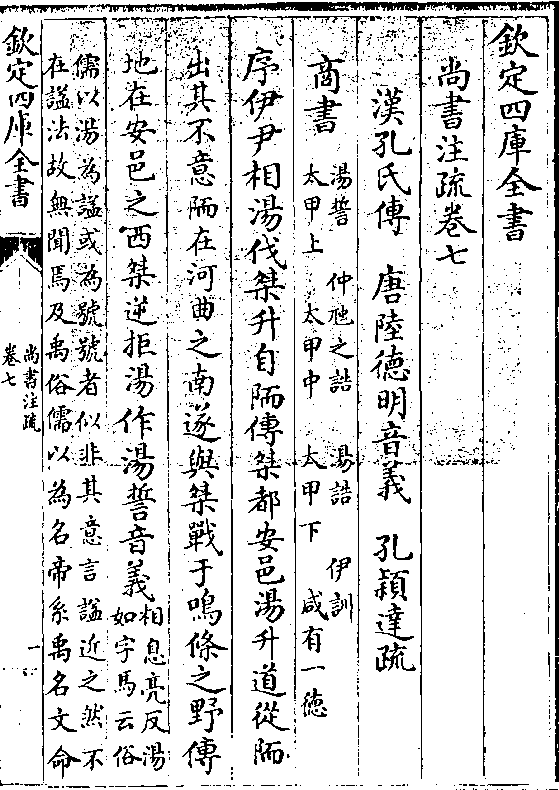 欽定四庫全書
尚書注疏卷七
漢孔氏傳 唐陸德明音義 孔穎達疏
商書
湯誓 仲虺之誥 湯誥 伊訓
太甲上 太甲中 太甲下 咸有一德
序伊尹相湯伐桀升自陑傳桀都安邑湯升道從陑
出其不意陑在河曲之南遂與桀戰于鳴條之野傳
地在安邑之西桀逆拒湯作湯誓音義
相息亮反湯
如字馬云俗
儒以湯為諡或為號號者似非其意言諡近之然不
在諡法故無聞焉及禹俗儒以為名帝系禹名文命
欽定四庫全書
尚書注疏
卷七
一